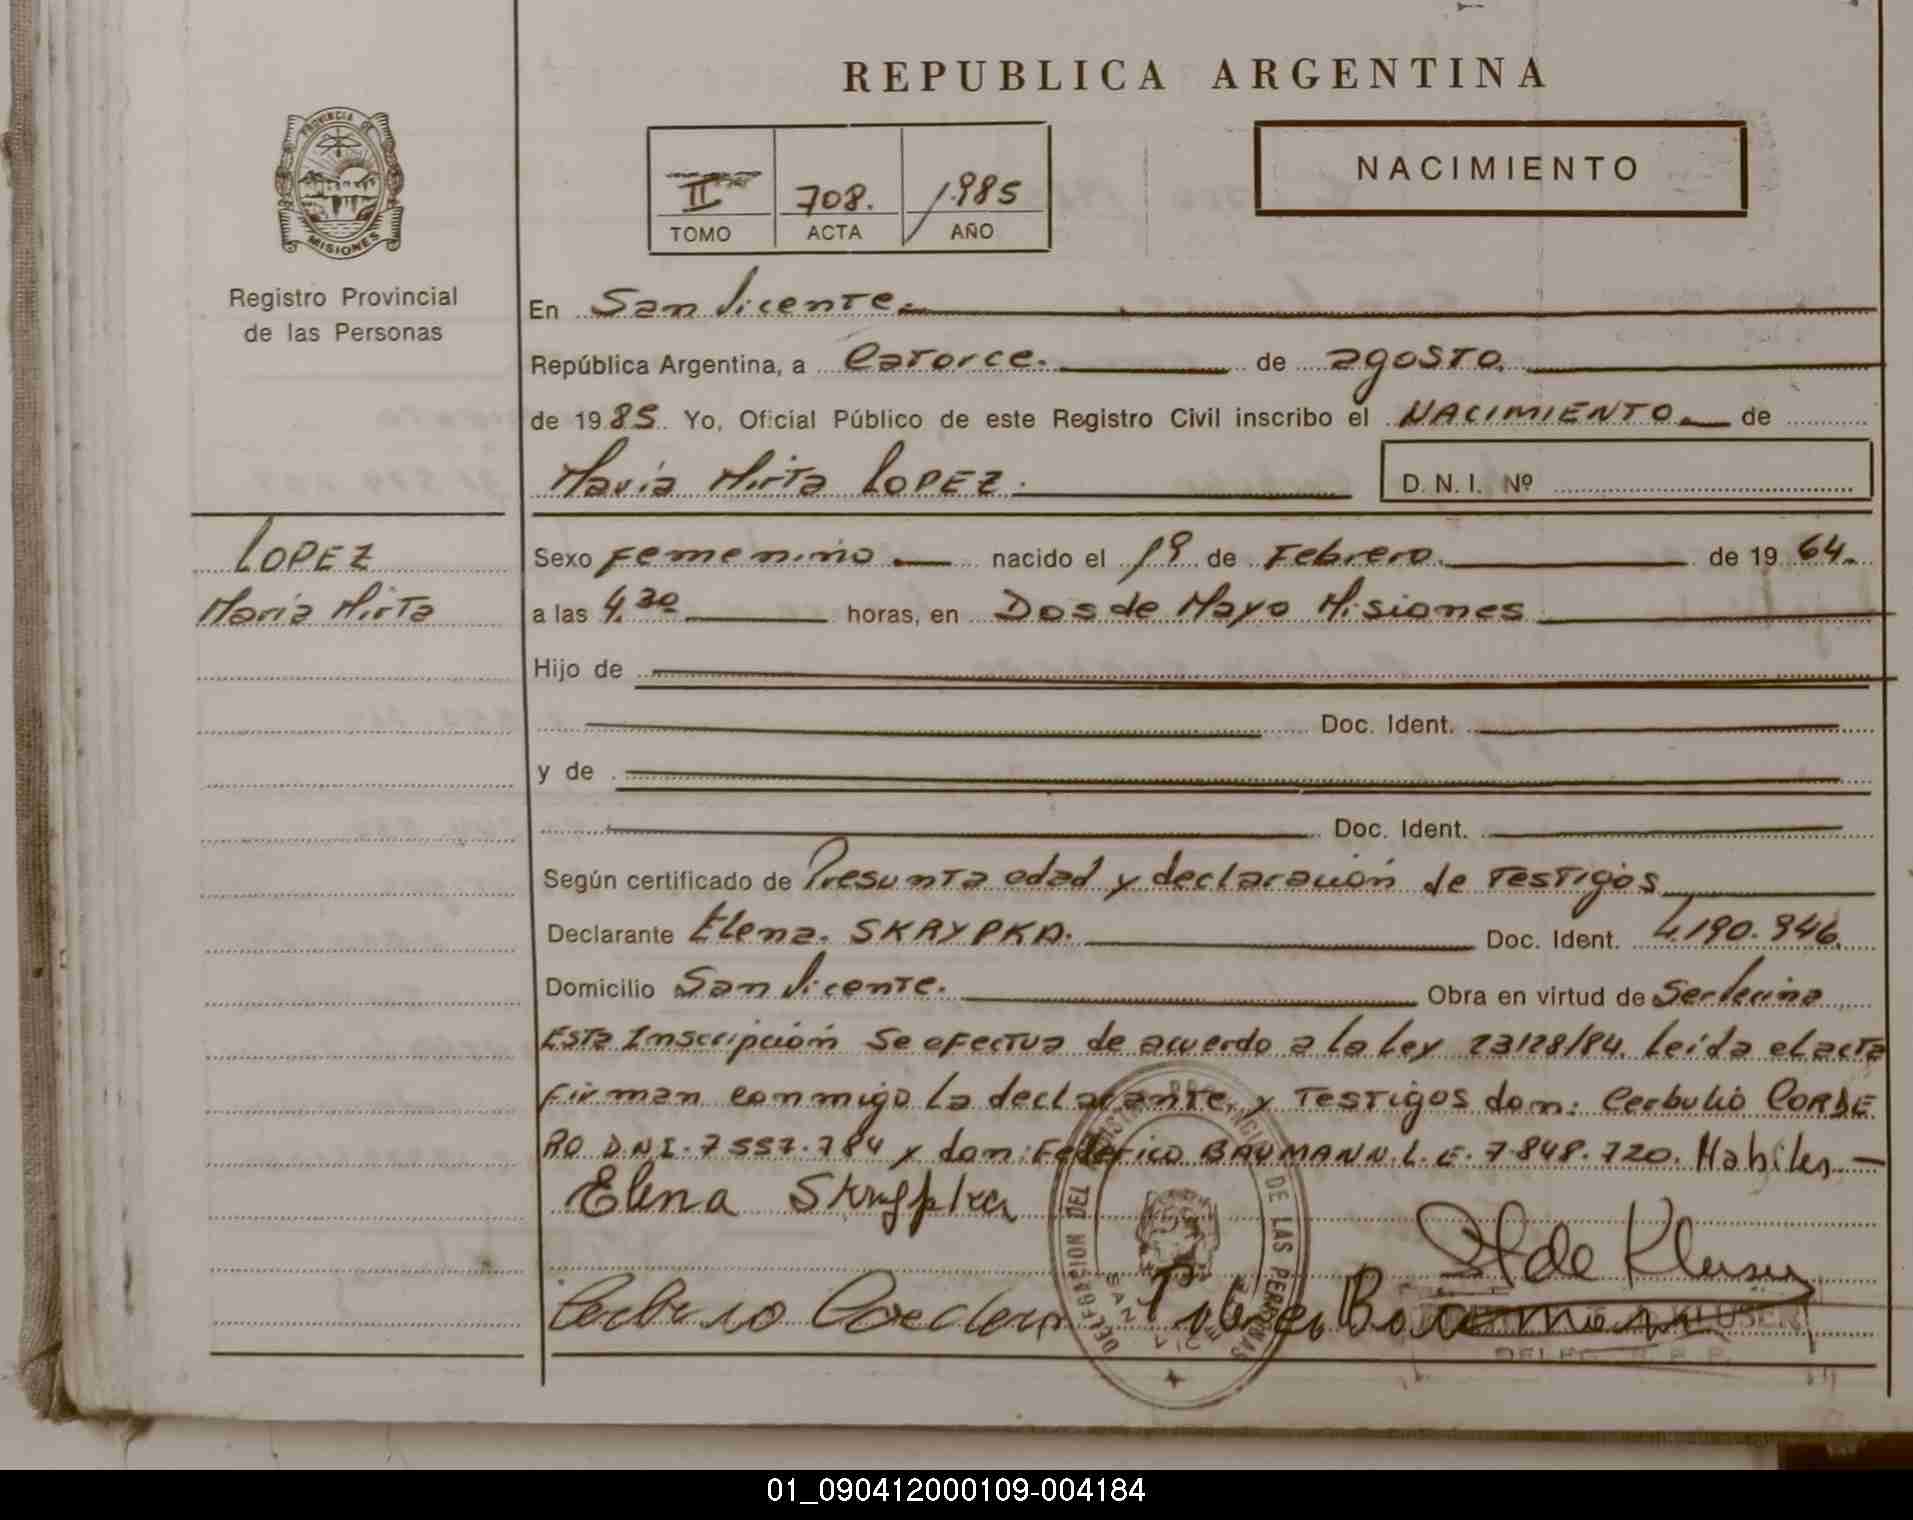 REPUBLICA ARGENTINA
PROVINCIA DE
MISIONES
Registro Provincial
de las Personas
II 708. 1.985
TOMO ACTA AÑO
NACIMIENTO
En San Vicente.
República Argentina, a Catorce. de agosto.
de 19 85 Yo, Oficial Público de este Registro Civil inscribo el NACIMIENTO de
María Mirta LOPEZ.
D. N. I. Nº
LOPEZ
María Mirta
Sexo Femenino nacido el 19 de Febrero. de 19 64.
a las 4.30 horas, en Dos de Mayo Misiones
Hijo de
Doc. Ident.
y de
Doc. Ident.
Según certificado de Presunta edad y declaración de Testigos
Declarante Elena. SKRYPKA. Doc. Ident. 4.190.946.
Domicilio San Vicente. Obra en virtud de
Esta Inscripción se efectua de acuerdo a la Ley 23128/84. Leída el acta
Firman conmigo la declarante y Testigos don: Cerbulio CORDE
RO D.N.I. 7557.784 y don: Federico BAUMANN. L.E. 7.848.720. Habiles.
Elena Skrypka
DELEGACION DEL REGISTRO PROVINCIAL DE LAS PERSONAS
SAN VICENTE
de Kluser
KLUSER
DELEG. R.P.P.
01_090412000109-004184